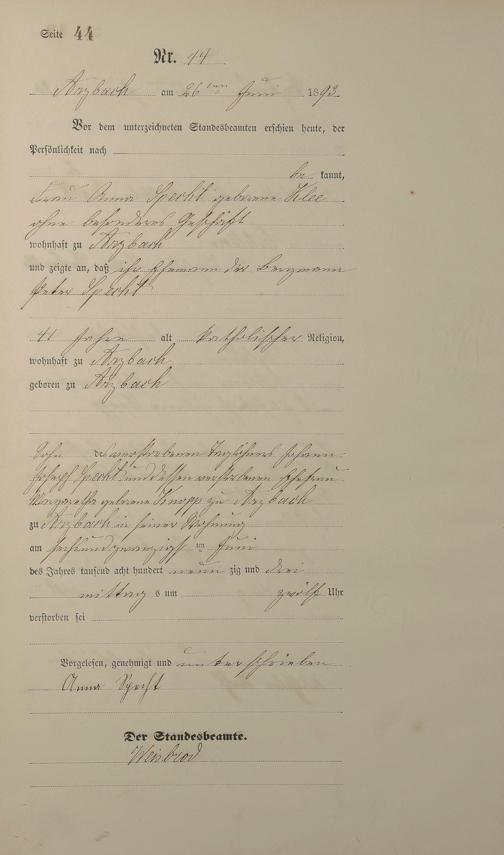 Seite 44
Nr. 44
Arzbach am 26ten Juni 1893
Vor dem unterzeichneten Standesbeamten erschien heute, der
Persönlichkeit nach
be kannt,
Frau Anna Specht geborene Klee
ohne besonderes Geschäft
wohnhaft zu Arzbach
und zeigte an, daß ihr Ehemann der Bergmann
Peter Specht
41 Jahre alt katholischer Religion,
wohnhaft zu Arzbach
geboren zu Arzbach
Sohn des verstorbenen Taglöhners Johann
Joseph Specht und dessen verstorbenen Ehefrau
Margaretha geborene Knopp zu Arzbach
zu Arzbach in seiner Wohnung
am sechsundzwanzigsten Juni
des Jahres tausend acht hundert neun zig und drei
mittag s um zwölf Uhr
verstorben sei
Vorgelesen, genehmigt und unterschrieben
Anna Specht
Der Standesbeamte.
Weisbrod